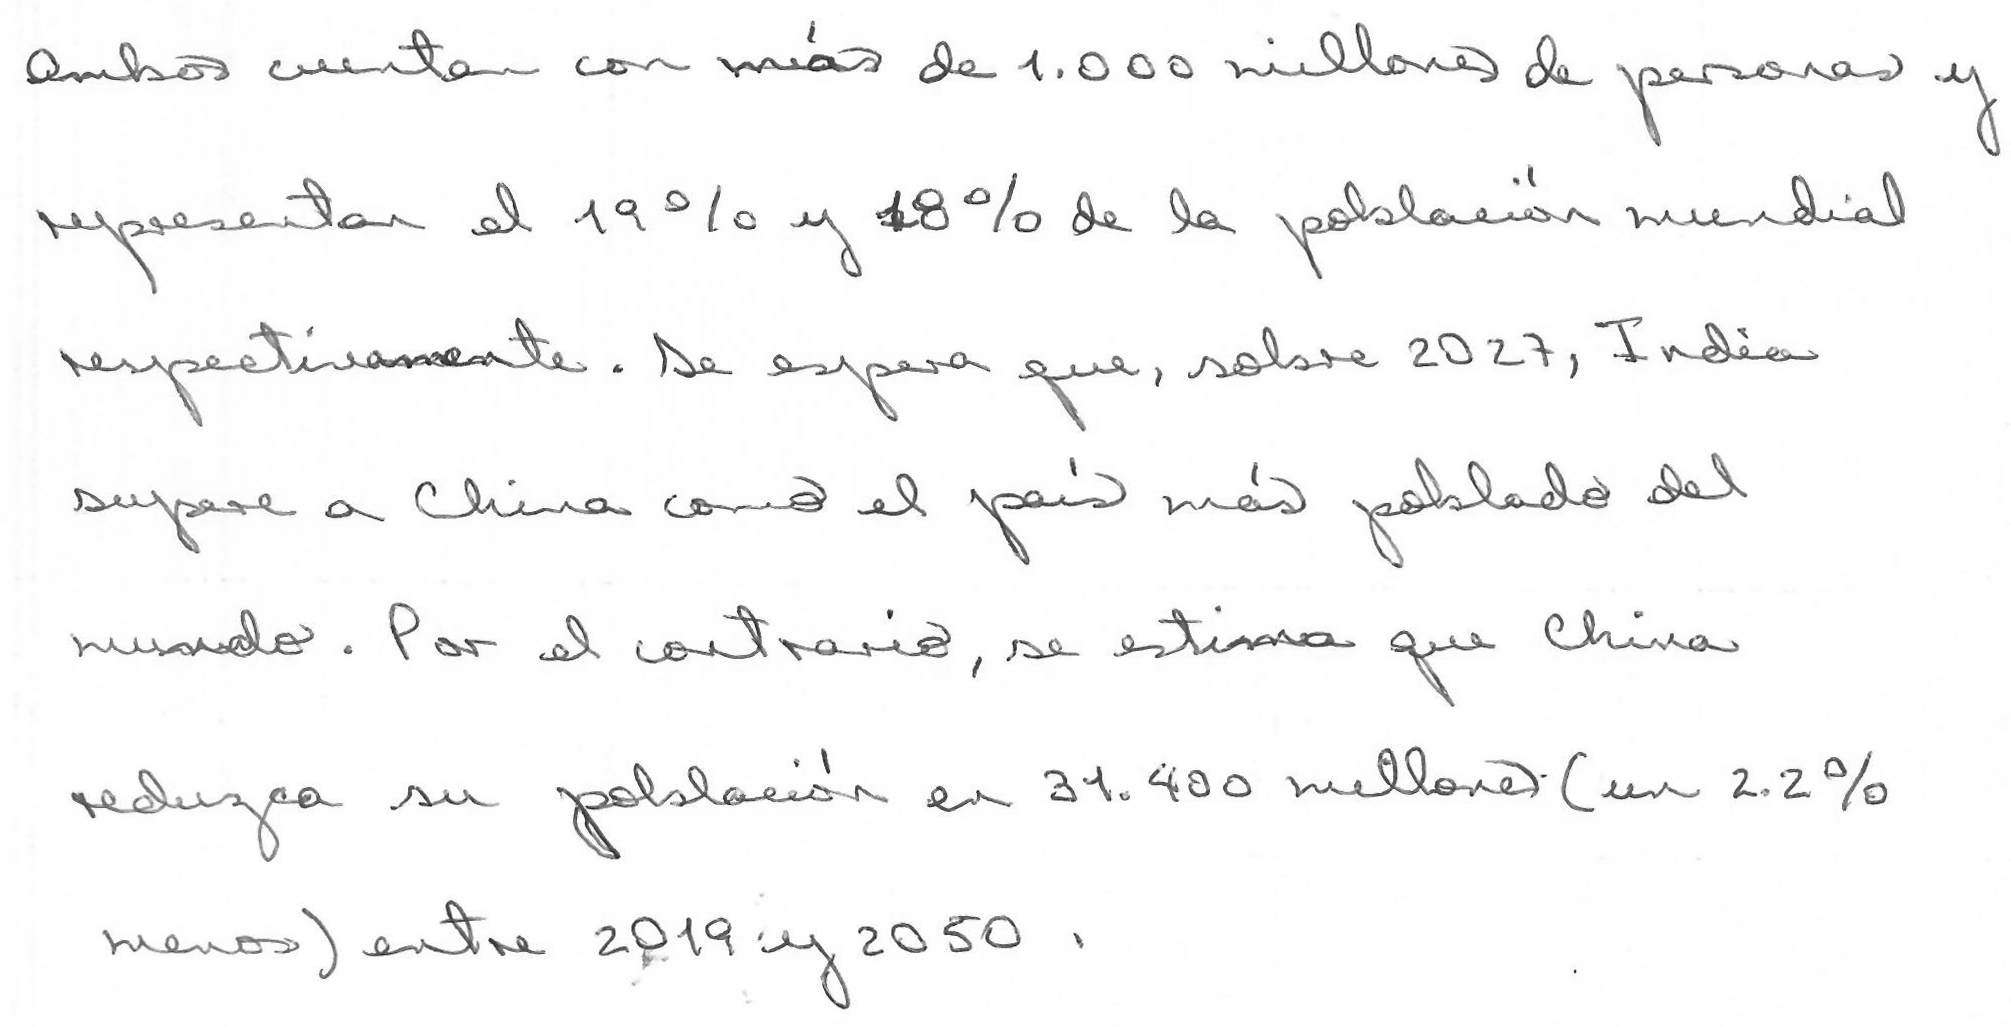 Ambos cuentan con más de 1.000 millones de personas y
representan el 19% y 18% de la población mundial
respectivamente. Se espera que, sobre 2027, India
supere a China como el país más poblado del
mundo. Por el contrario, se estima que China
reduzca su población en 31.400 millones (un 2.2%
menos) entre 2019 y 2050.